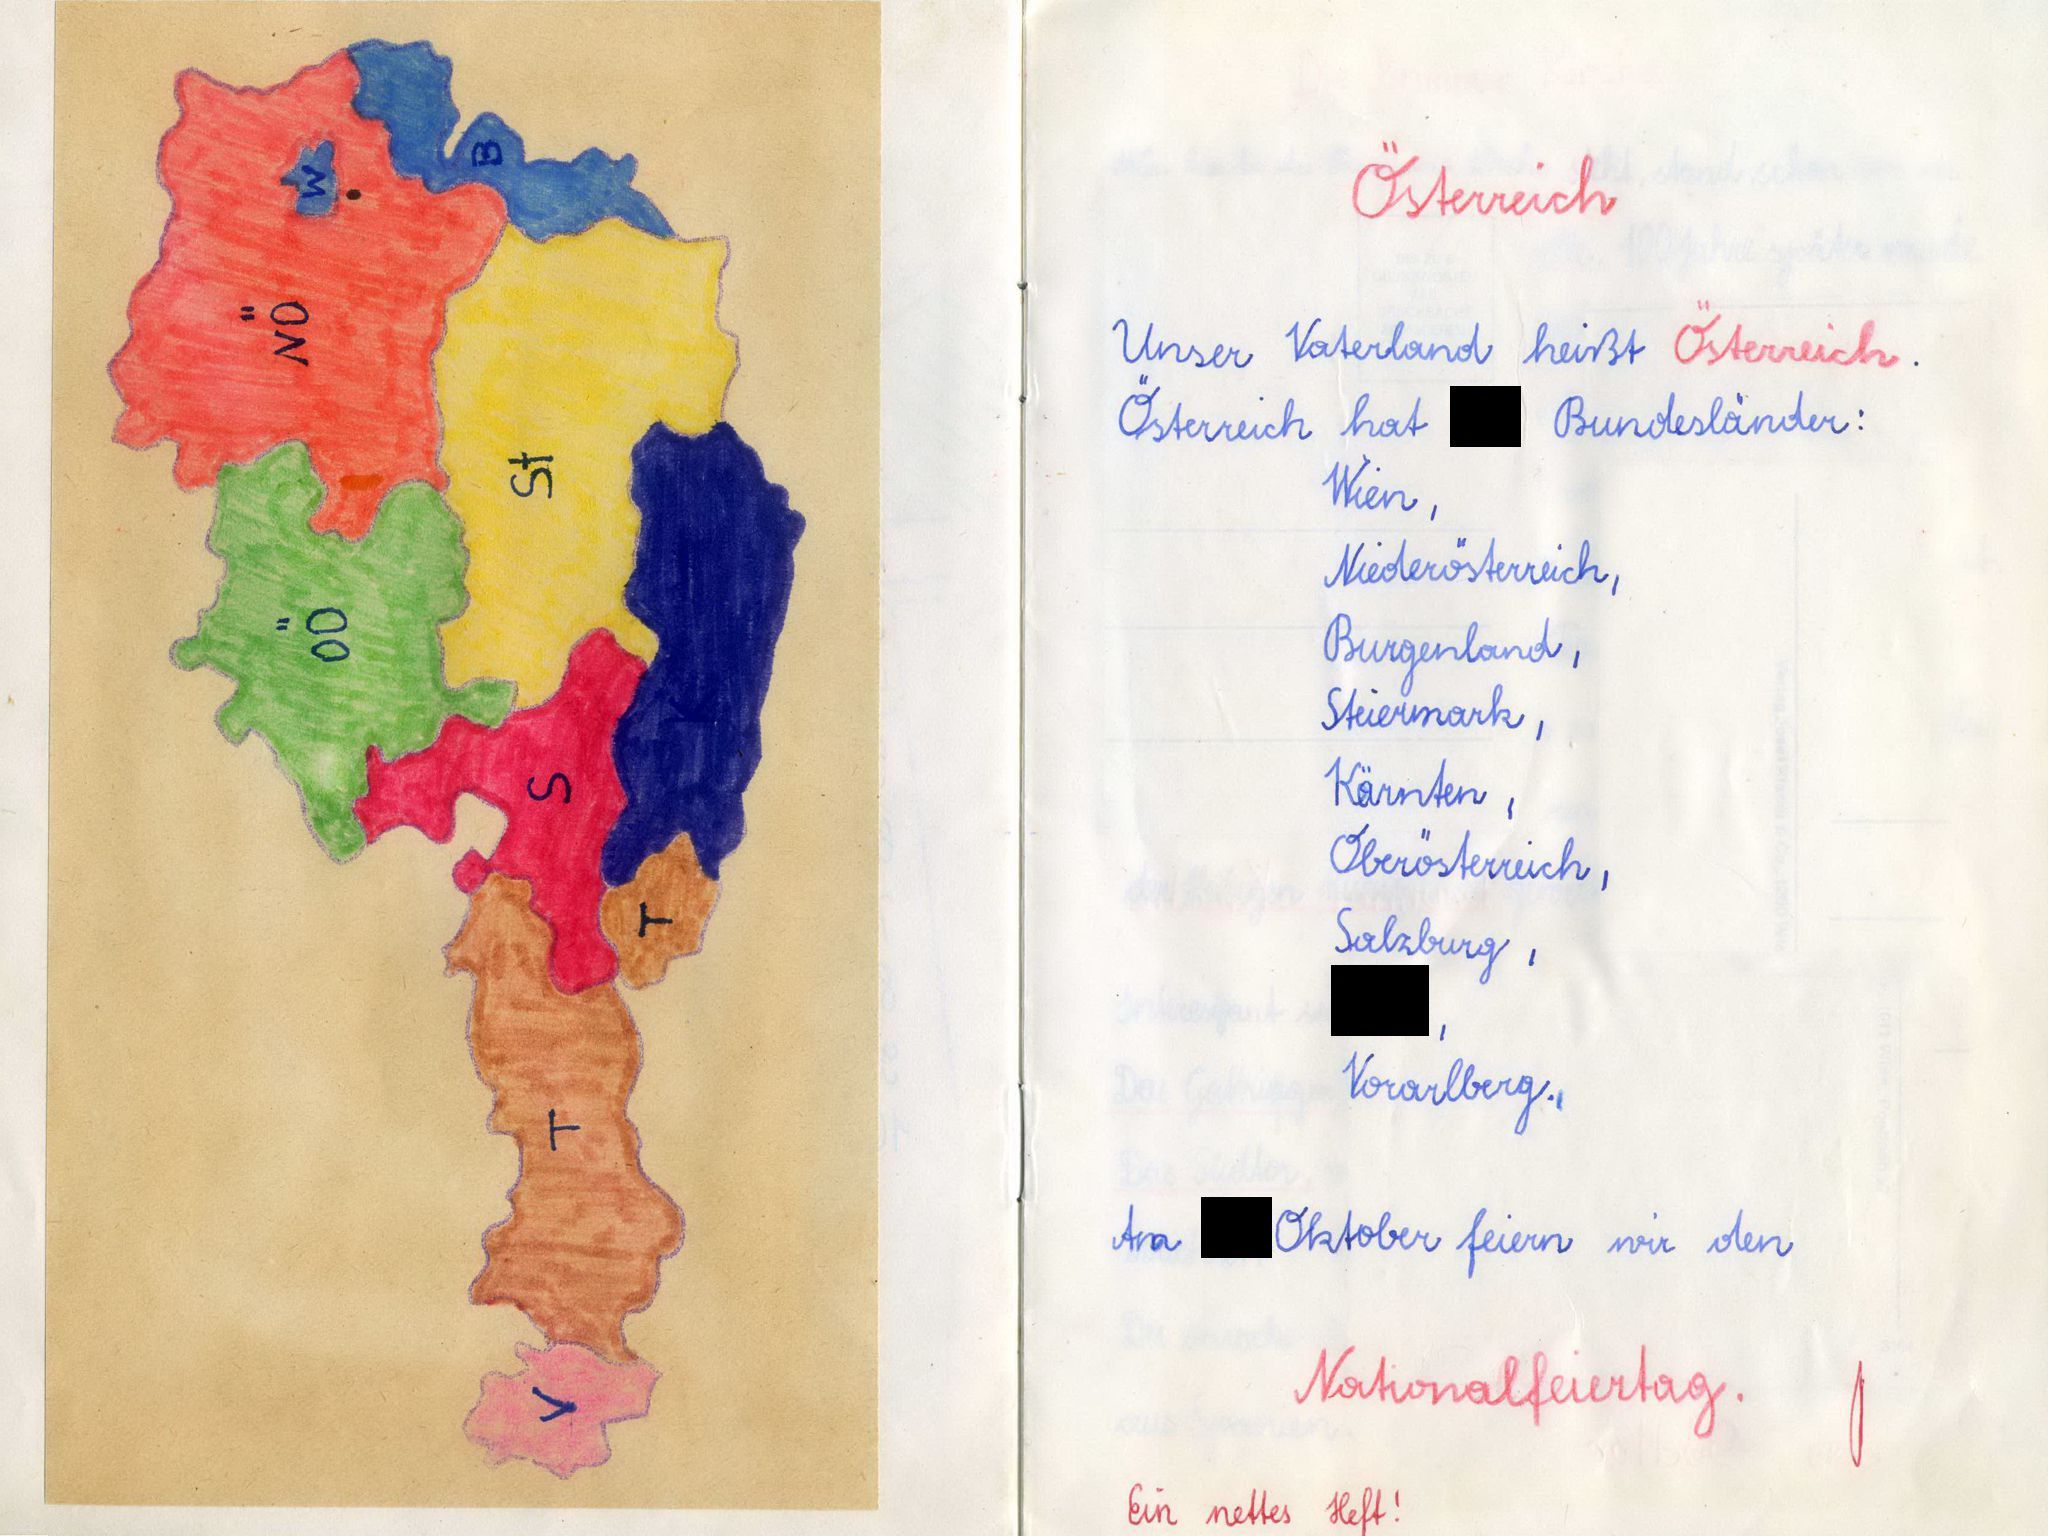 B
W
NÖ
St
OÖ
K
S
T
T
V
Österreich
Unser Vaterland heißt Österreich.
Österreich hat Bundesländer:
Wien,
Niederösterreich,
Burgenland,
Steiermark,
Kärnten,
Oberösterreich,
Salzburg,
,
Vorarlberg.,
Am Oktober feiern wir den
Nationalfeiertag.
Ein nettes Heft!